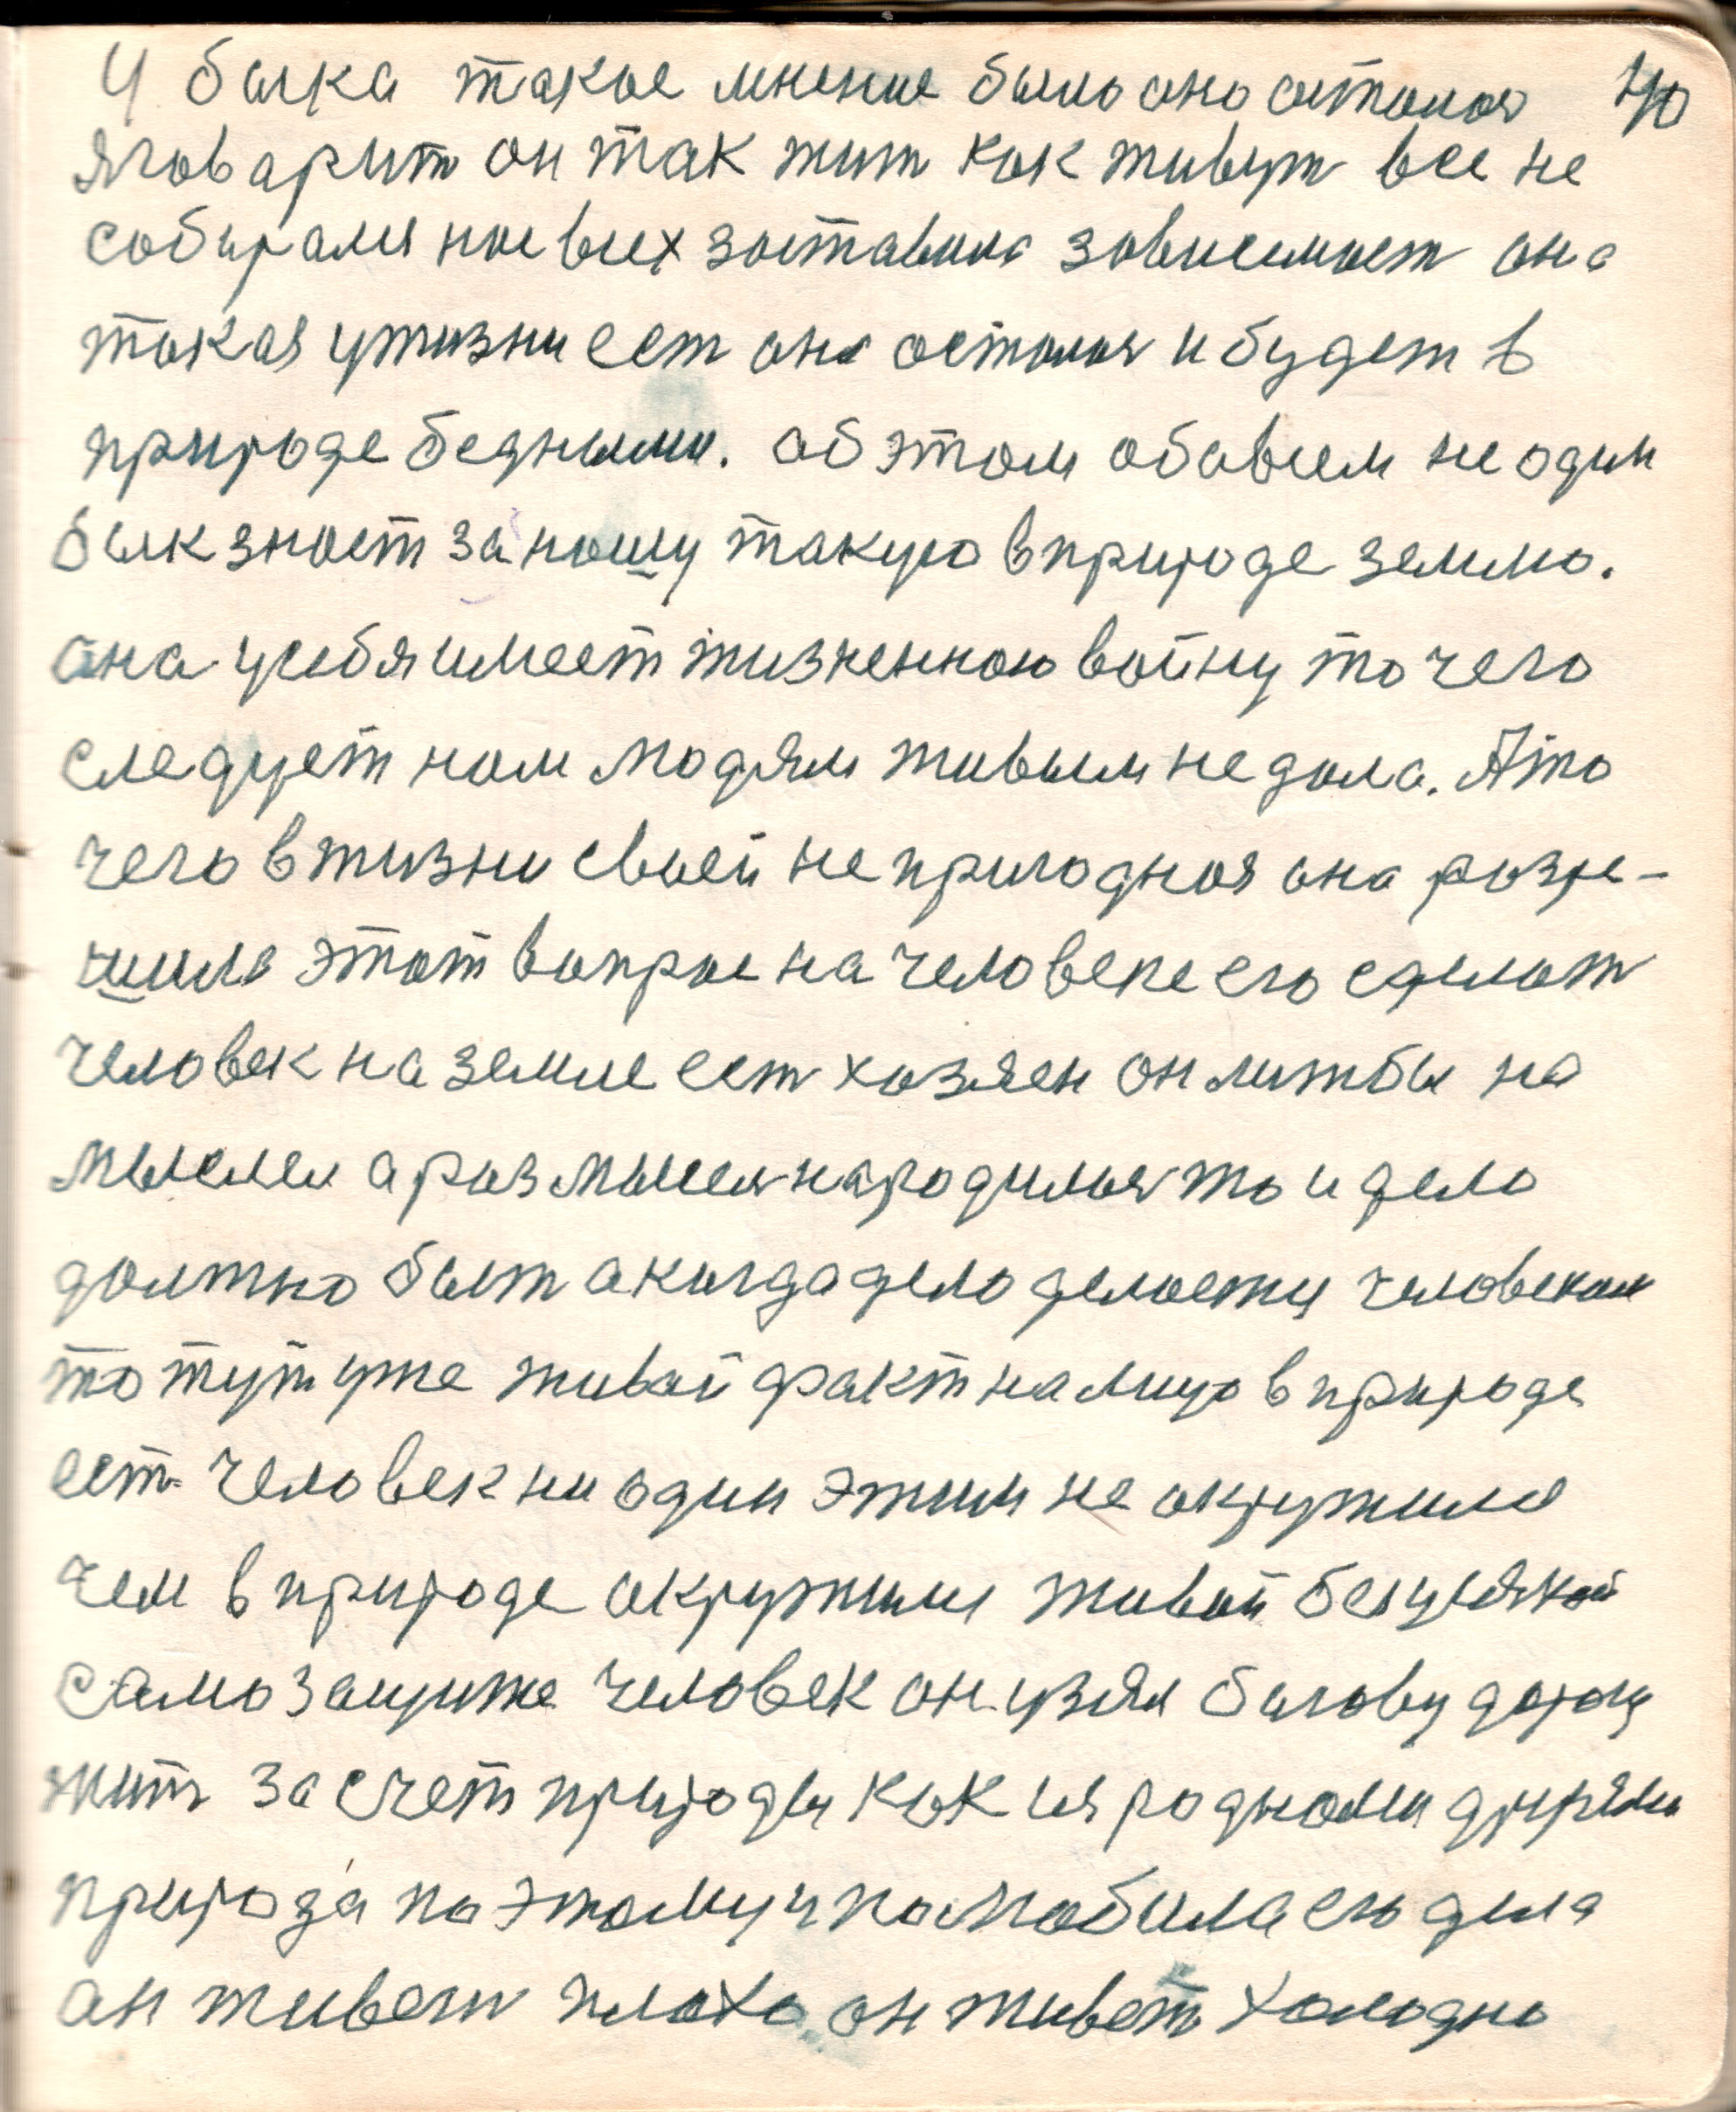 У быка такое мнение было оно асталося 70
я говарит он так жит как живут все не
собирался нас всех заставила зависимост она
такая у жизни ест она асталося и будет в
природе бедными. аб этом обовсем не один
бык знает за нашу такую в природе землю.
ана у себя имеет жизненною войну то чего
следует нам людям живым не дала. А то
чего в жизни своей не пригодная она разре-
шила этот вопрос на человеке его сделат
человек на земле ест хозяен он лижбы на
мыслел а раз мысел народилося то и дело
должно быт а когда дело делоетца человеком
то тут уже живой факт на лицо в природе
ест человек ни один этим не акружился
чем в природе акружили живой бацылкой
само защиже человек он узял багову дорогу
жит за счет природы как и я родномы друзями
природа па этому и палюбила его дела
ан живет плохо он живет холодно